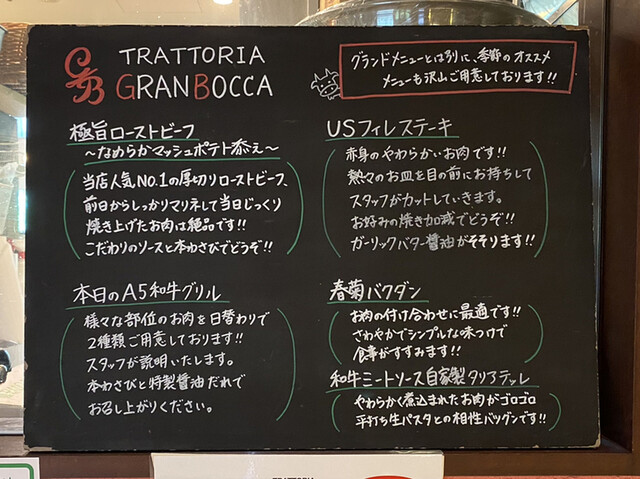 GB
TRATTORIA
GRANBOCCA
グランドメニューとは別に、季節のオススメ
メニューも沢山ご用意しております!!
極旨ローストビーフ
～なめらかマッシュポテト添え～
当店人気NO.1の厚切りローストビーフ、
前日からしっかりマリネして当日じっくり
焼き上げたお肉は絶品です!!
こだわりのソースと本わさびでどうぞ!!
本日のA5和牛グリル
様々な部位のお肉を日替わりで
2種類ご用意しております!!
スタッフが説明いたします。
本わさびと特製醤油だれで
お召し上がりください。
USフィレステーキ
赤身のやわらかいお肉です!!
熱々のお皿を目の前にお持ちして
スタッフがカットしていきます。
お好みの焼き加減でどうぞ!!
ガーリックバター醤油がそそります!!
春菊バクダン
お肉の付け合わせに最適です!!
さわやかでシンプルな味つけで
食事がすすみます!!
和牛ミートソース自家製タリアテッレ
やわらかく煮込まれたお肉がゴロゴロ
平打ち生パスタとの相性バツグンです!!
TRATTORIA